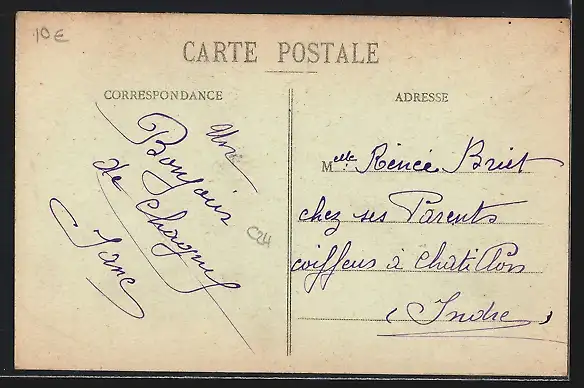 10 €
CARTE POSTALE
CORRESPONDANCE
ADRESSE
Un
Bonjour
de Chagny
Jane
C24
Melle Renée Briet
chez ses Parents
coiffeur à Chatillon
(Indre)